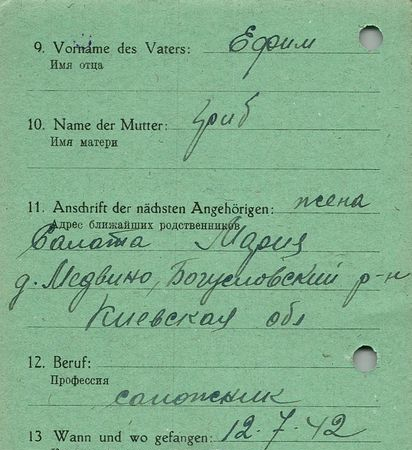 9. Vorname des Vaters: Ефим
Имя отца
10. Name der Mutter: Гриб
Имя матери
11. Anschrift der nächsten Angehörigen: жена
Адрес ближайших родственников
Салата Мария
д. Медвино, Богусловский р-н
Киевская обл
12. Beruf:
Профессия
сапожник
13 Wann und wo gefangen: 12.7.42